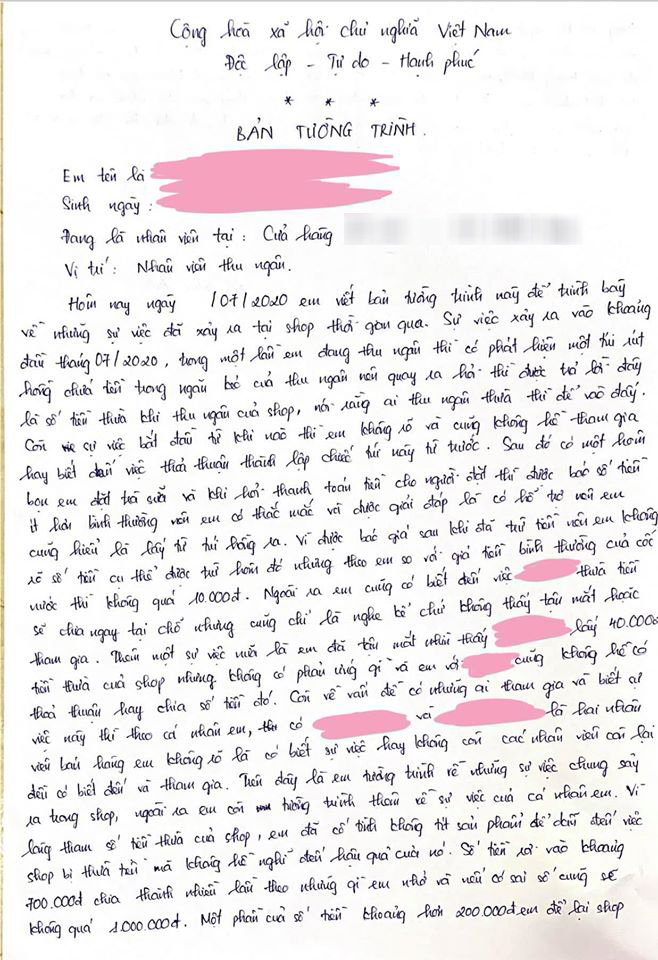 Cộng hoà xã hội chủ nghĩa Việt Nam
Độc lập - Tự do - Hạnh phúc
* * *
BẢN TƯỜNG TRÌNH.
Em tên là
Sinh ngày:
Đang là nhân viên tại: Cửa hàng
Vị trí: Nhân viên thu ngân.
Hôm nay ngày /07/2020 em viết bản tường trình này để trình bày
về những sự việc đã xảy ra tại shop thời gian qua. Sự việc xảy ra vào khoảng
đầu tháng 07/2020, trong một lần em đang thu ngân thì có phát hiện một túi rút
hồng chứa tiền trong ngăn kẻ của thu ngân nên quay ra hỏi thì được trả lời đây
là số tiền thừa khi thu ngân của shop, nói rằng ai thu ngân thừa thì để vào đấy.
Còn sự việc bắt đầu từ khi nào thì em không rõ và cũng không hề tham gia
hay biết đến việc thoả thuận thành lập chiếc túi này từ trước. Sau đó có một hôm
bọn em đặt trà sữa và khi hỏi thanh toán tiền cho người đặt thì được báo số tiền
ít hơn bình thường nên em có thắc mắc và được giải đáp là có hỗ trợ nên em
cũng hiểu là lấy từ túi hồng ra. Vì được báo giá sau khi đã trừ tiền nên em không
rõ số tiền cụ thể được trừ hôm đó nhưng theo em so với giá tiền bình thường của cốc
nước thì không quá 10.000đ. Ngoài ra em cũng có biết đến việc thừa tiền
sẽ chia ngay tại chỗ nhưng cũng chỉ là nghe kể chứ không thấy tận mắt hoặc
tham gia. Thêm một sự việc nữa là em đã tận mắt nhìn thấy lấy 40.000đ
tiền thừa của shop nhưng không có phản ứng gì và em với cũng không hề có
thoả thuận hay chia số tiền đó. Còn về vấn đề có những ai tham gia và biết
việc này thì theo cá nhân em, có và là hai nhân
viên bán hàng em không rõ là có biết sự việc hay không còn các nhân viên còn lại
đều có biết đến và tham gia. Trên đây là em tường trình về những sự việc chung xảy
ra trong shop, ngoài ra em còn tường trình thêm về sự việc của cá nhân em. Vì
lòng tham số tiền thừa của shop, em đã cố tình không tít sản phẩm để dẫn đến việc
shop bị thừa tiền mà không hề nghĩ đến hậu quả của nó. Số tiền rơi vào khoảng
700.000đ chia thành nhiều lần theo những gì em nhớ và nếu có sai số cũng sẽ
không quá 1.000.000đ. Một phần của số tiền khoảng hơn 200.000đ em để lại shop